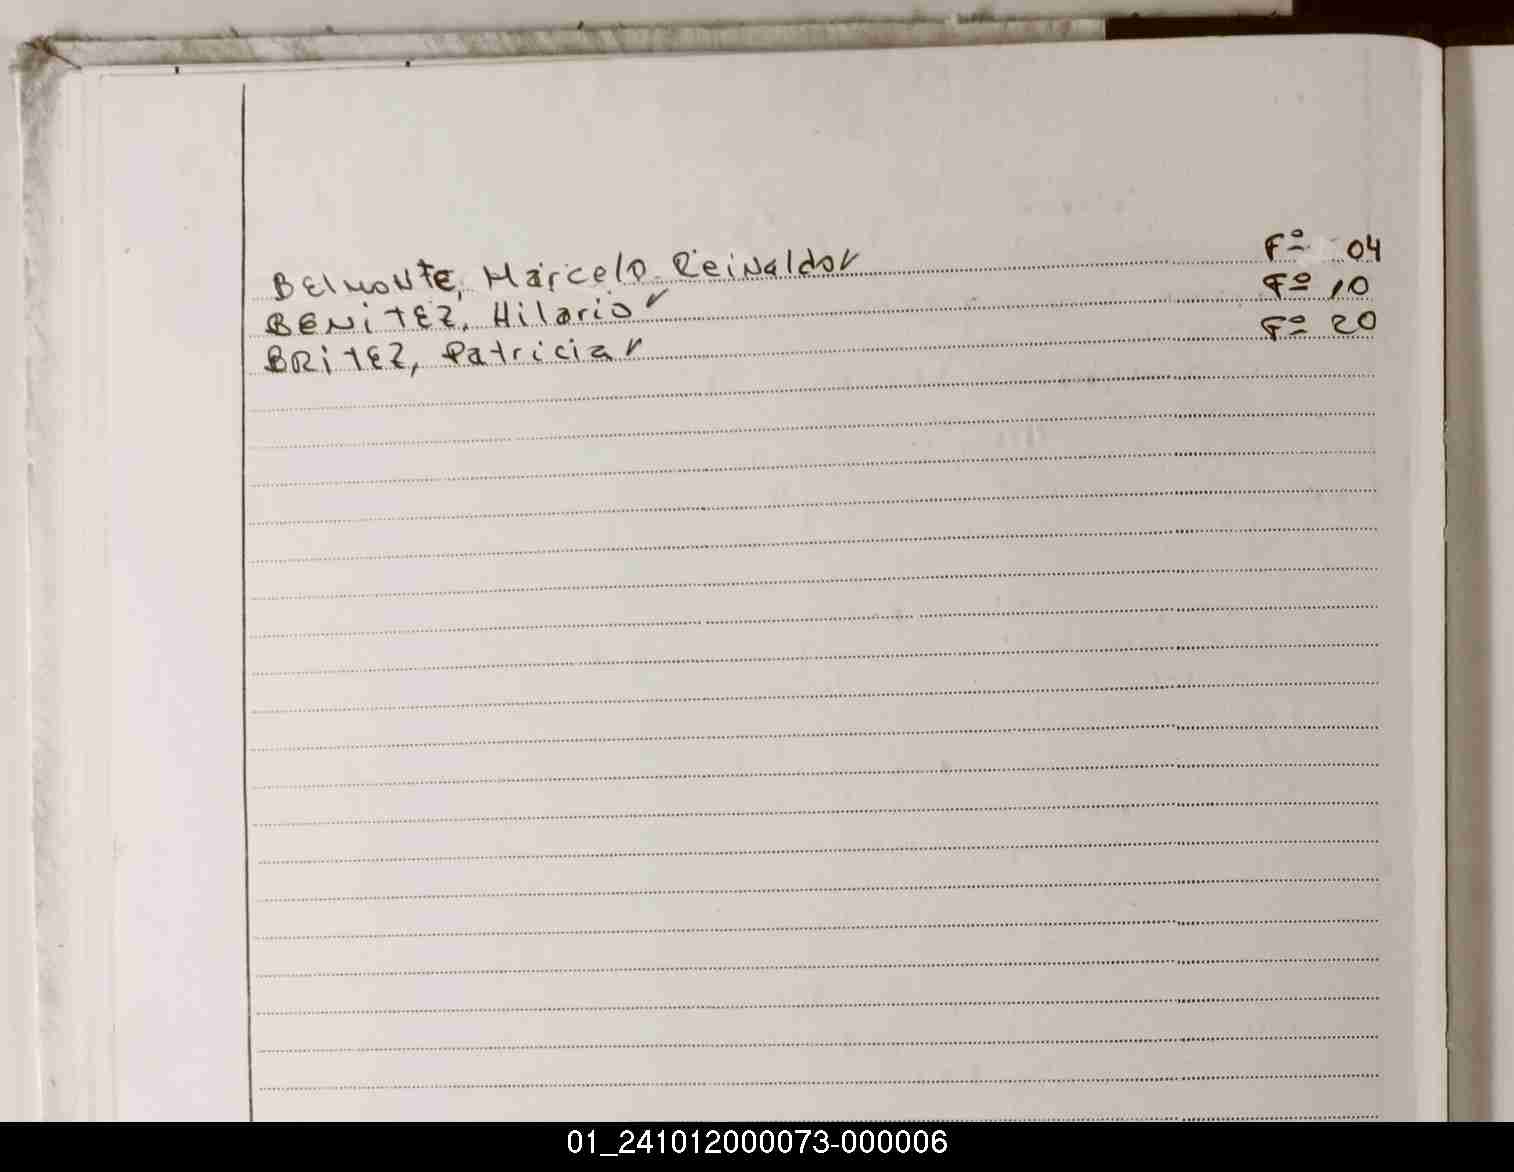 BElMONTE, Marcelo Reinaldo ✓ Fº 04
BENiTEZ, Hilario ✓ Fº 10
BRiTEZ, Patricia ✓ Fº 20
01_241012000073-000006